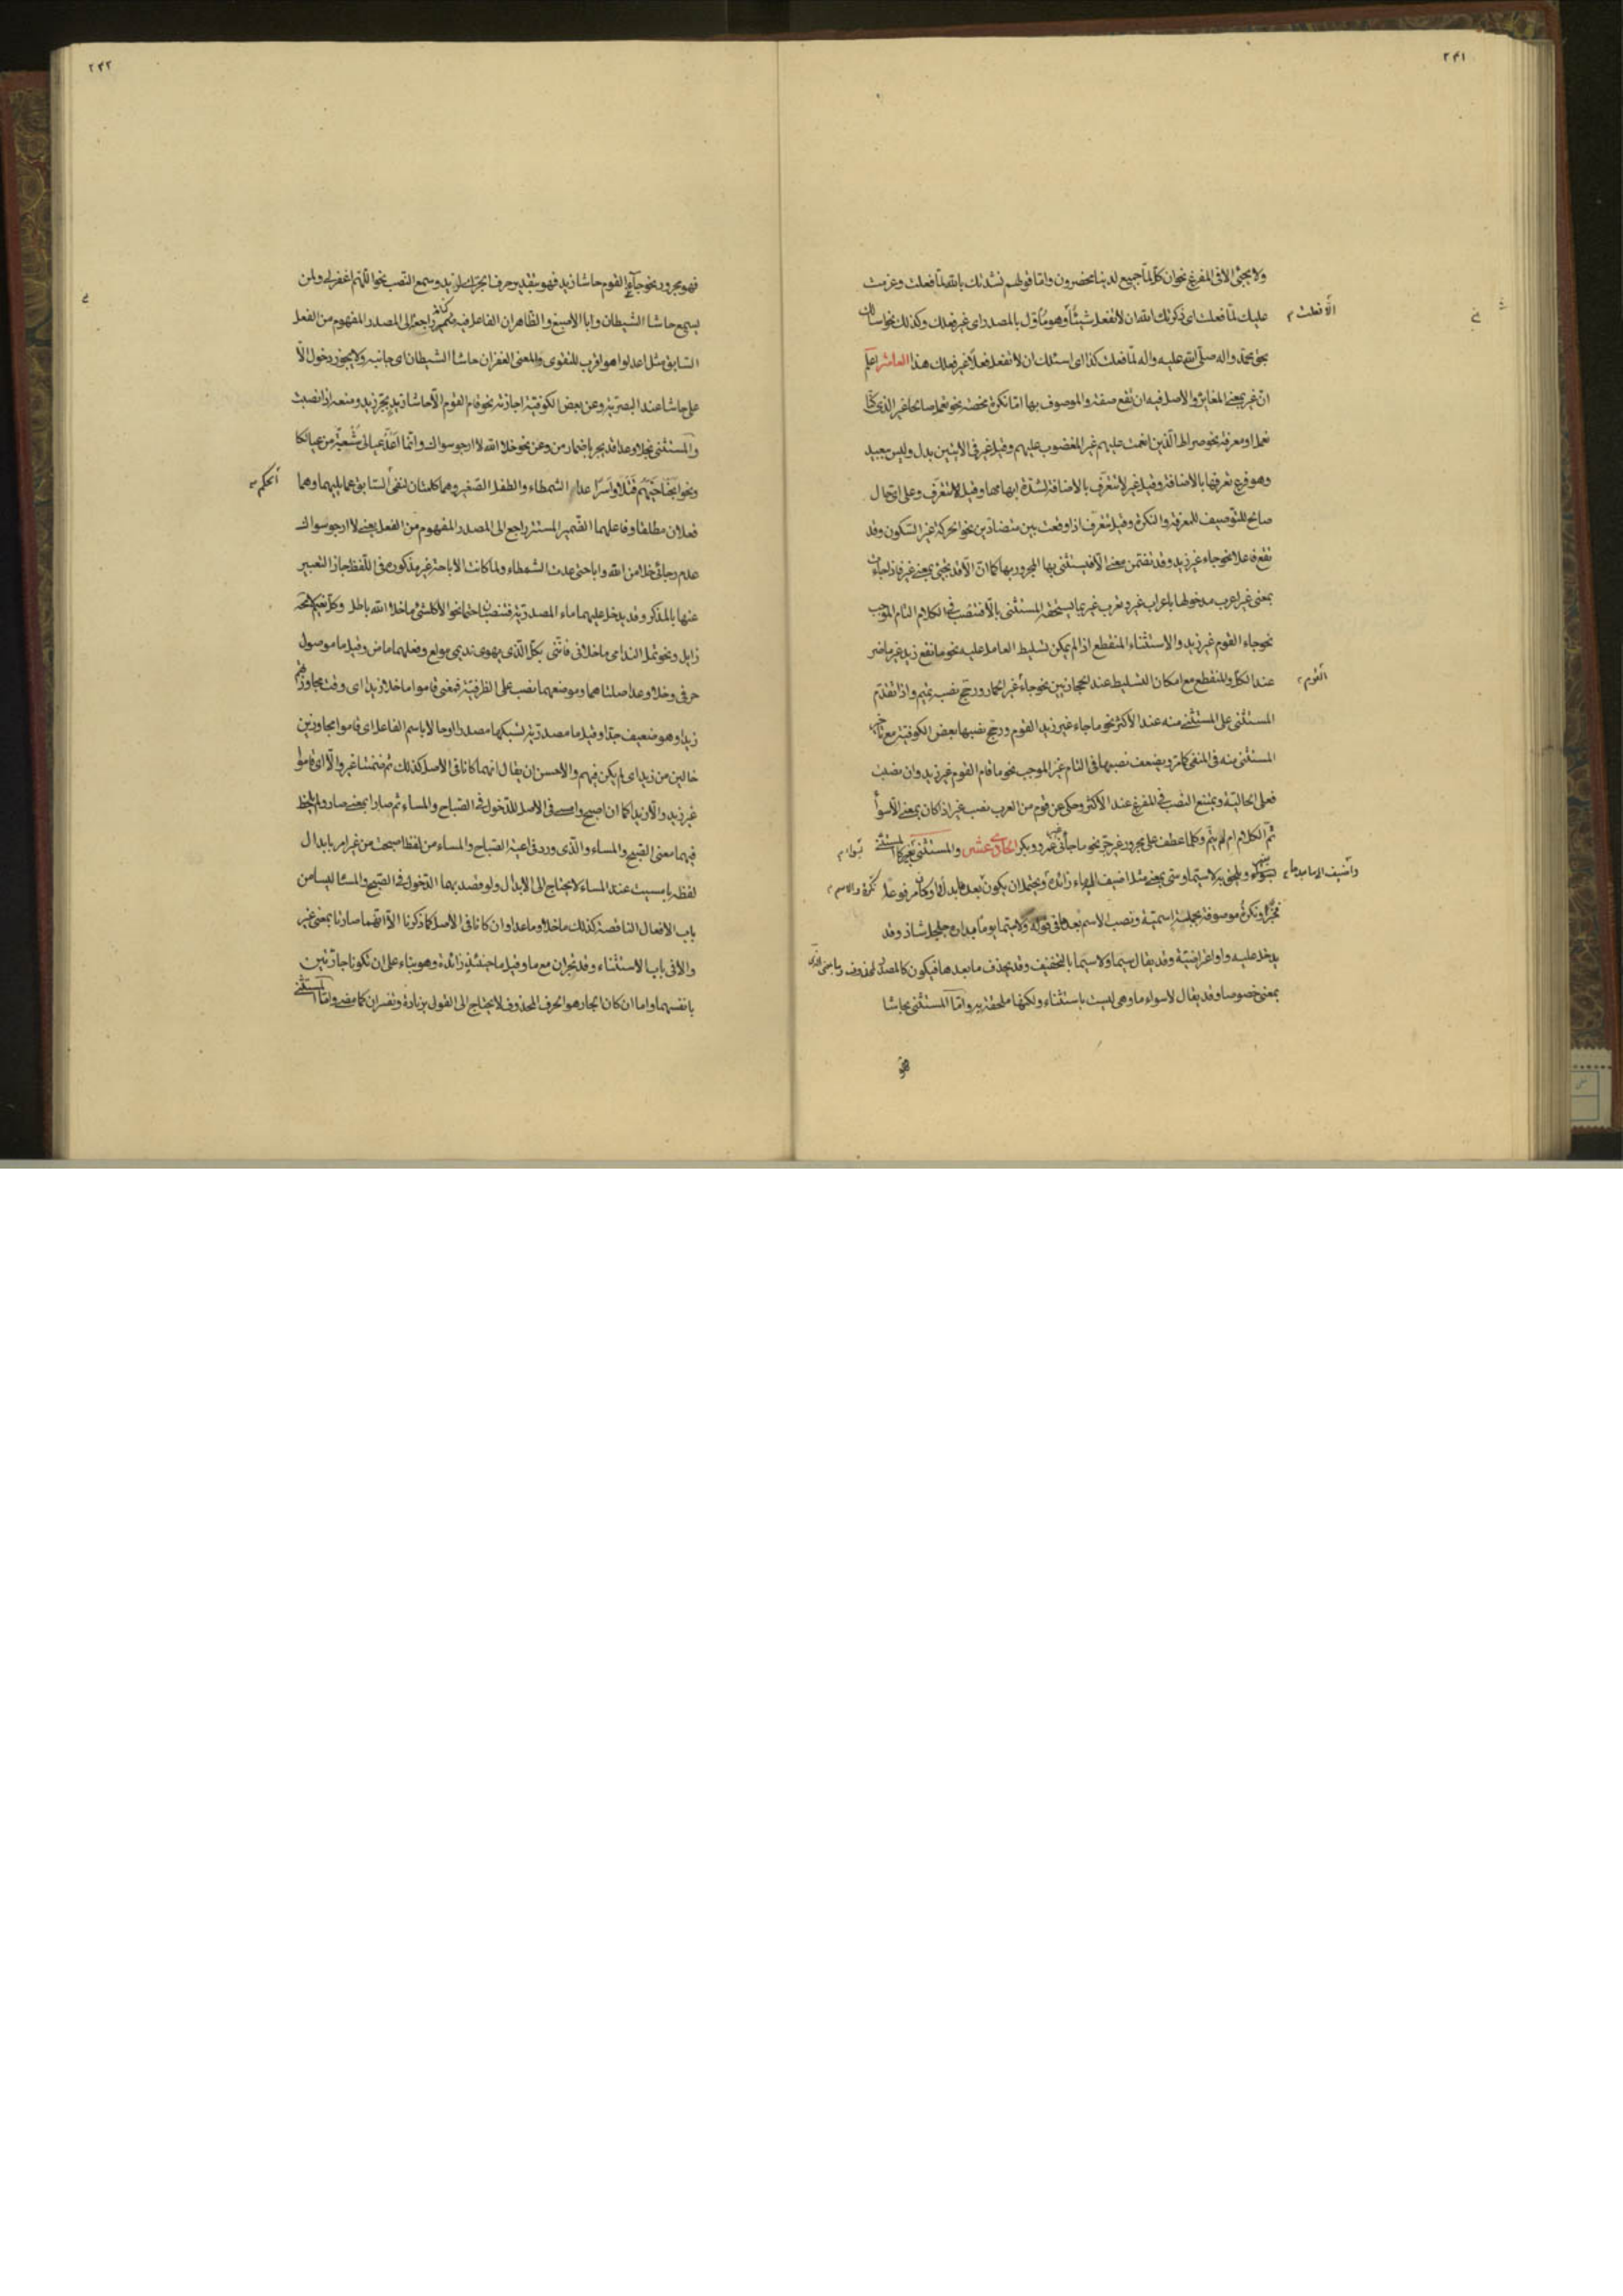 ٢٤١
ولا يجئ الا فى المفرغ نحو ان كل لما جميع لدينا محضرون واما قولهم نشدتك بالله لما فعلت وعزمت
عليك لما فعلت اى ذكرتك الله ان لا تفعل شيئا وهو ماول بالمصدر اى غير فعلك وكذلك نحو اسالك
الا فعلت
بحق محمد واله صلى الله عليه واله لما فعلت كذا اى اسئلك ان لا تفعل فعلا غير فعلك هذا العاشر اعلم
ان غير بمعنى المغاير والاصل فيه ان تقع صفة والموصوف بها اما نكرة محضة نحو نعمل صالحا غير الذى كنا
نعمل او معرفة نحو صراط الذين انعمت عليهم غير المغضوب عليهم وقيل غير فى الايتين بدل وليس ببعيد
وهو فرع تعرفها بالاضافة وقيل غير لا تتعرف بالاضافة لشدة ابهامها وقيل لا تتعرف وعلى اى حال
صالح للتوصيف للمعرفة والنكرة وقيل تتعرف اذا وقعت بين متضادين نحو الحركة غير السكون وقد
تقع فاعلا نحو جاء غير زيد وقد تتضمن معنى الا فيستثنى بها المجرور بها كما ان الا قد يجئ بمعنى غير فاذا جاءت
بمعنى غير اعرب مدخولها باعراب غير وتعرب غير بما يستحقه المستثنى بالا فتنصب فى الكلام التام الموجب
نحو جاء القوم غير زيد والاستثناء المنقطع اذا لم يمكن تسليط العامل عليه نحو ما نفع زيد غير ما ضر
عند الكل والمنقطع مع امكان التسليط عند الحجازيين نحو ما جاء غير الحمار ورجح نصبه تميم واذا تقدم
القوم
المستثنى على المستثنى منه عند الاكثر نحو ما جاء غير زيد القوم ورجح نصبها بعض الكوفية مع تاخر
المستثنى منه فى المنفى كما مر ويضعف نصبها فى التام غير الموجب نحو ما قام القوم غير زيد وان نصبت
فعلى الحالية ويمتنع النصب فى المفرغ عند الاكثر وحكى عن قوم من العرب نصب غير اذا كان بمعنى الا سواء
تم الكلام ام لم يتم وكلما عطف على مجرور غير جر نحو ما جائنى غير عمرو وبكر الحادى عشر والمستثنى بغير كالمستثنى
بسوى ويلحق به لاسيما وسى بمعنى مثل اضيف الى ما زائدة ويحتمل ان يكون بعدها بدل
نكرة والاسم
نكرة موصوفة بجملة اسمية ونصب الاسم بعدها فى قوله ولاسيما يوما بدارة جلجل شاذ وقد
يدخل عليه واو اعتراضية وقد يقال سيما ولاسيما بالتخفيف وقد يحذف ما بعدها فيكون كالمصدر
بمعنى خصوصا وقد يقال لاسواء ما وهى ليست باستثناء ولكنها ملحقة به واما المستثنى بحاشا
فهو
٢٤٢
فهو مجرور نحو جاء القوم حاشا زيد فهو بتقدير حرف الجر لزيد وسمع النصب نحو اللهم اغفر لى ولمن
يسمع حاشا الشيطان وابا الاصبغ والظاهر ان الفاعل فيه ضمير راجع الى المصدر المفهوم من الفعل
السابق مثل اعدلوا هو اقرب للتقوى والمعنى الغفران حاشا الشيطان اى جانبه ولا يجوز دخول الا
على حاشا عند البصرية وعن بعض الكوفية اجازته نحو قام القوم الا حاشا زيد بجر زيد ومنعه اذا نصبت
والمستثنى بخلا وعدا قد يجر باضمار من وعن نحو خلا الله لا ارجو سواك وانما اعد عيالى شعبة من عيالكا
ونحو ابحنا حيهم قتلا واسرا عدا الشمطاء والطفل الصغير وهما كلمتان لنفى السابق عما يليهما وهما
الحكم
فعلان مطلقا وفاعلهما الضمير المستتر راجع الى المصدر المفهوم من الفعل يعنى لا ارجو سواك
عدم رجائى خلا من الله واباحتى عدت الشمطاء ولما كانت الاباحة غير مذكورة فى اللفظ جاز التعبير
عنها بالمذكر وقد يدخل عليهما ماء المصدرية فتنصبان حتما نحو الا كل شئ ما خلا الله باطل وكل نعيم لا محالة
زايل ونحو تمل الندامى ما خلانى فاننى بكل الذى يهوى نديمى مولع وفعلهما ماض وقيل ما موصول
حرفى وخلا وعدا صلتاهما وموضعهما نصب على الظرفية فمعنى قاموا ما خلا زيدا اى وقت مجاوزتهم
زيدا وهو ضعيف جدا وقيل ما مصدرية لسبكهما مصدرا وحالا باسم الفاعل اى قاموا مجاوزين
خالين من زيد اى لم يكن فيهم والاحسن ان يقال انهما كانا فى الاصل كذلك ثم ضمنتا غير والا اى قاموا
غير زيد والا زيدا كما ان اصبح وامسى فى الاصل للدخول فى الصباح والمساء ثم صارا بمعنى صار ولم يلحظ
فيهما معنى الصبح والمساء والذى ورد فى اعية الصباح والمساء من لفظ اصبحت من غير امر بابدال
لفظه بامسيت عند المساء لا يحتاج الى الابدال ولو قصد بهما الدخول فى الصبح والمساء ليسا من
باب الافعال الناقصة كذلك ما خلا وما عدا وان كانا فى الاصل كما ذكرنا الا انهما صارتا بمعنى غير
والا فى باب الاستثناء وقد يجران مع ما وقيل ما حينئذ زائدة وهو بناء على ان تكونا جارتين
بانفسهما واما ان كان الجار هو الحرف المحذوف لا يحتاج الى القول بزيادة وتفسران كما مضى واما المستثنى